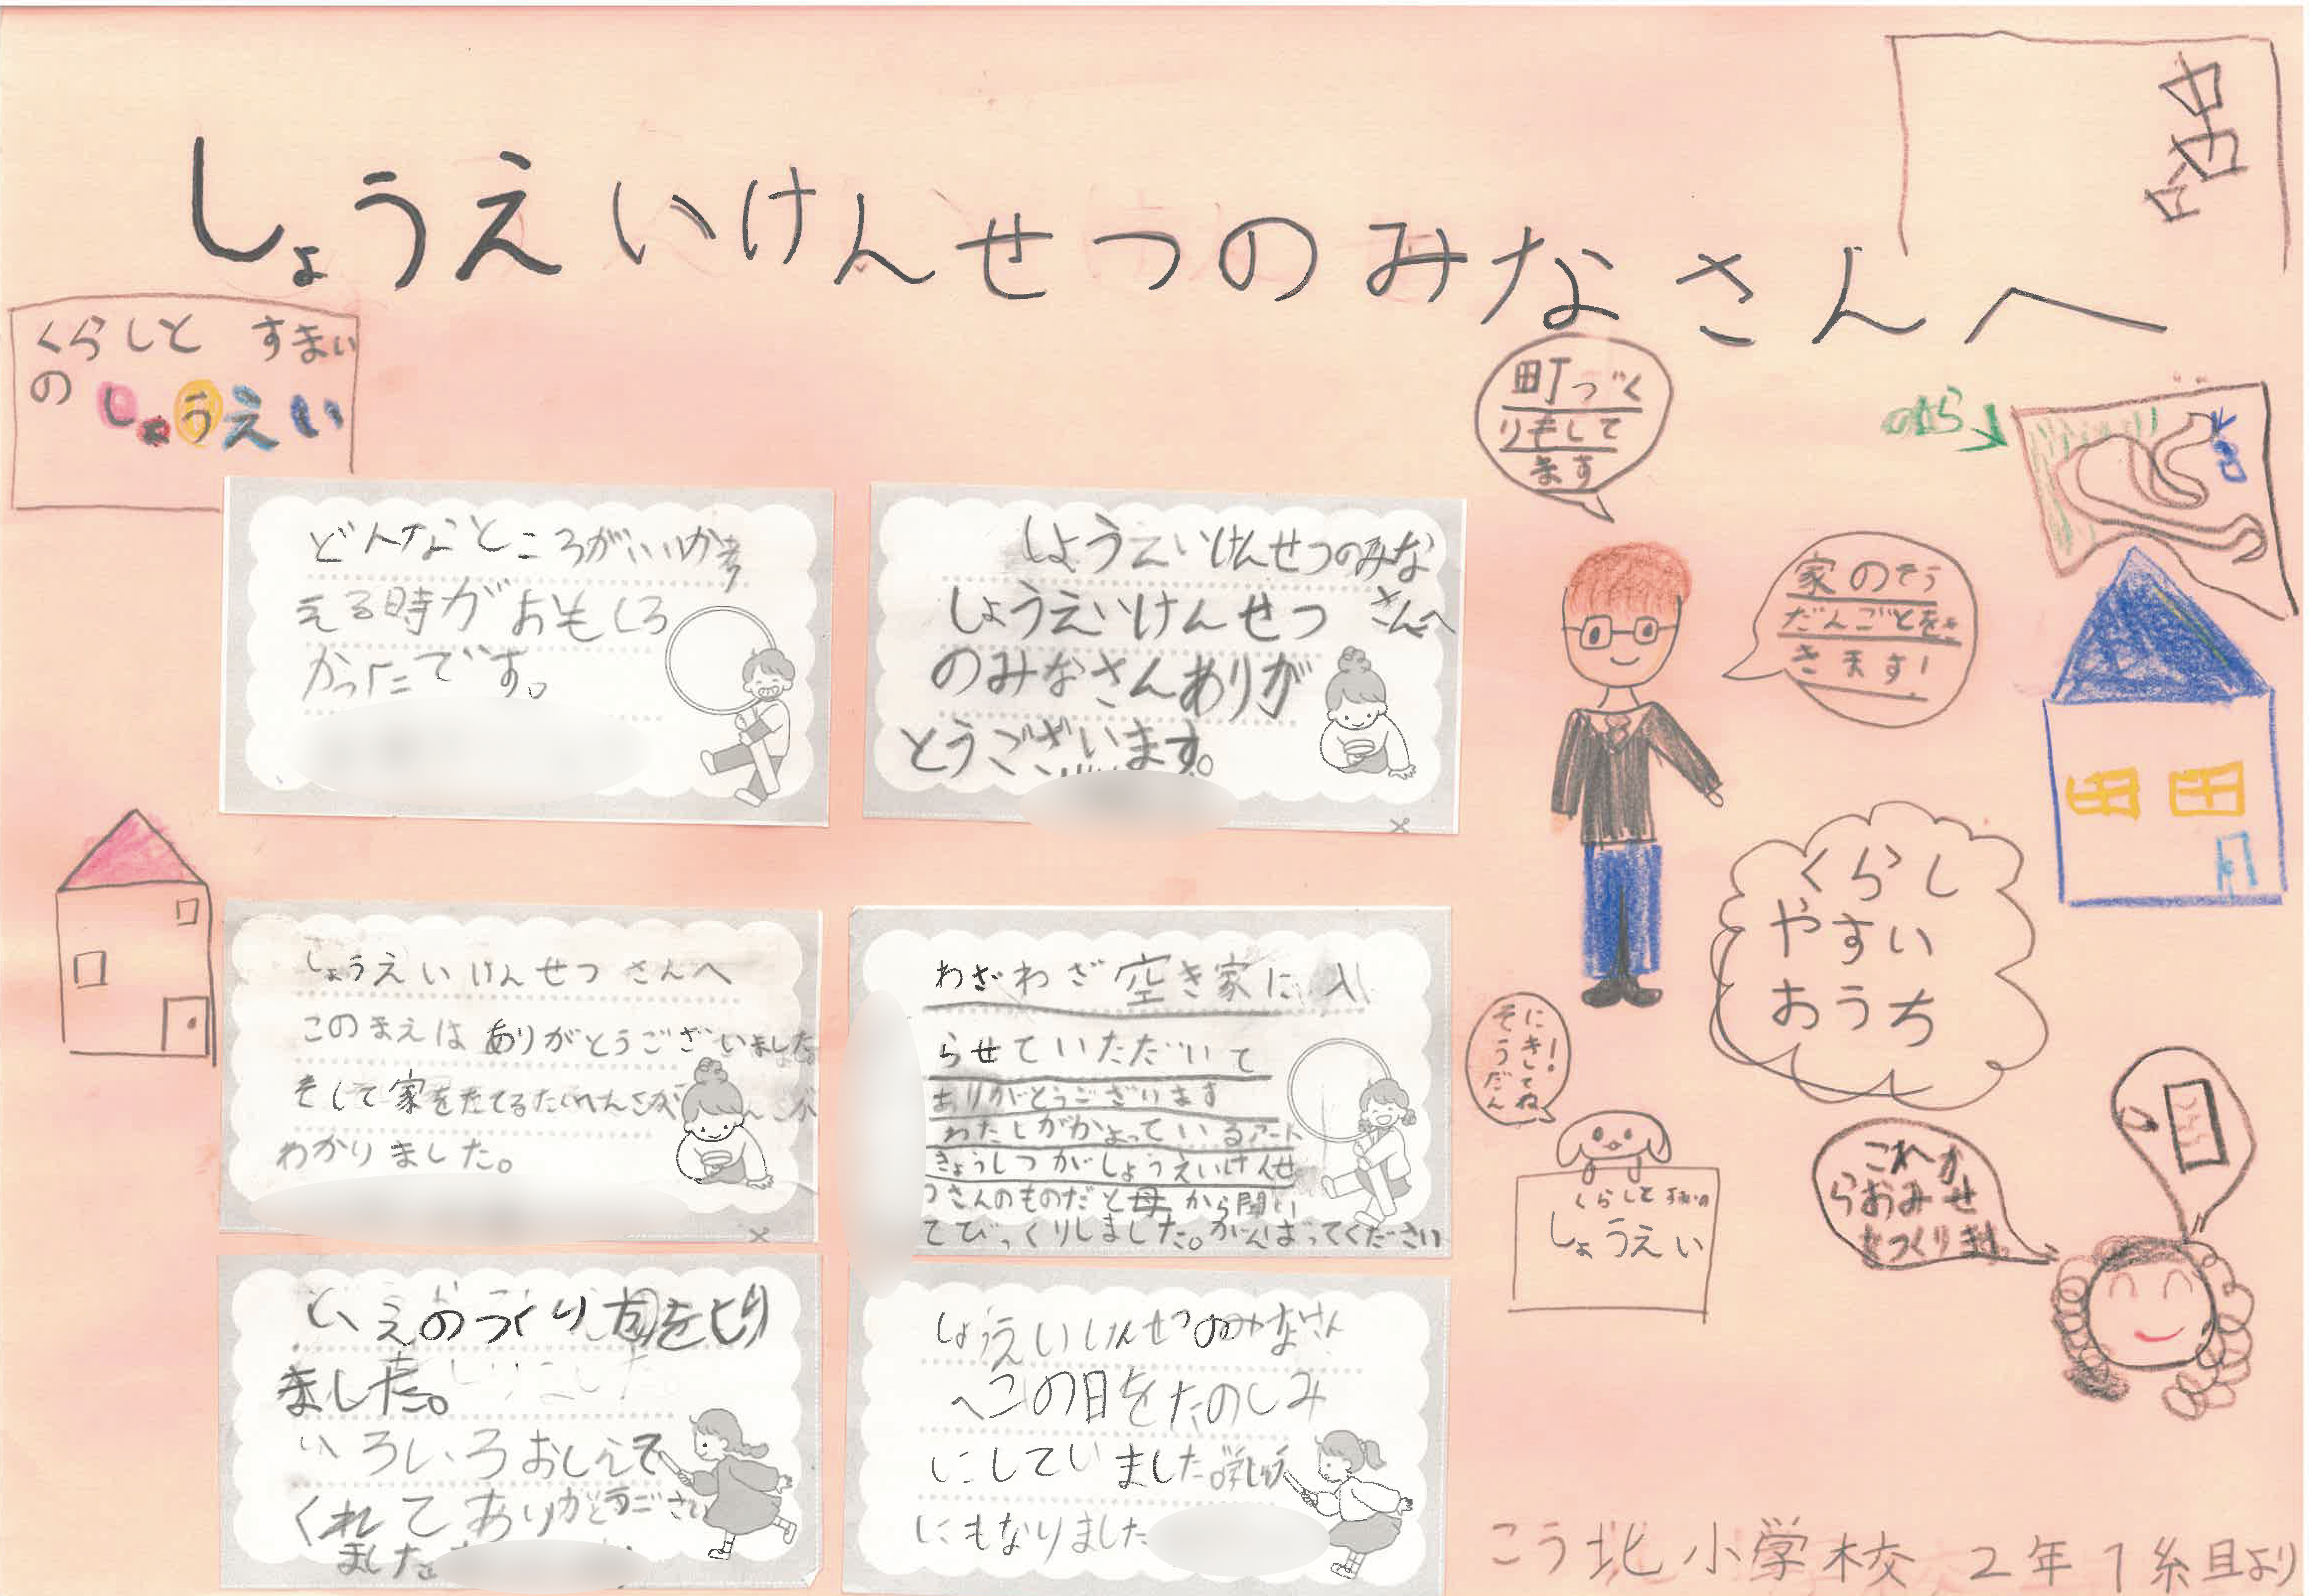 しょうえいけんせつのみなさんへ
くらしと すまい
の しょうえい
町づく
りもして
ます
のはら
家のそう
だんごとをき
きます!
どんなところがいいか考
える時がおもしろ
かったです。
しょうえいけんせつのみな
さんへ
しょうえいけんせつ
のみなさんありが
とうございます。
くらし
やすい
おうち
しょうえいけんせつ さんへ
このまえは ありがとうございました
そして家をたてる
わかりました。
わざわざ空き家に入
らせていただいて
ありがとうございます
わたしがかよっているアート
きょうしつがしょうえいけんせ
つさんのものだと母から聞い
てびっくりしました。がんばってください
そうだん
にきてね!
くらしと すまいの
しょうえい
これか
らおみせ
をつくります
いえのつくり方をしり
ました。
いろいろおしえて
くれてありがとうござい
ました。
しょうえいけんせつのみなさん
へこの日をたのしみ
にしていました。
にもなりました
こう北小学校 2年1組より